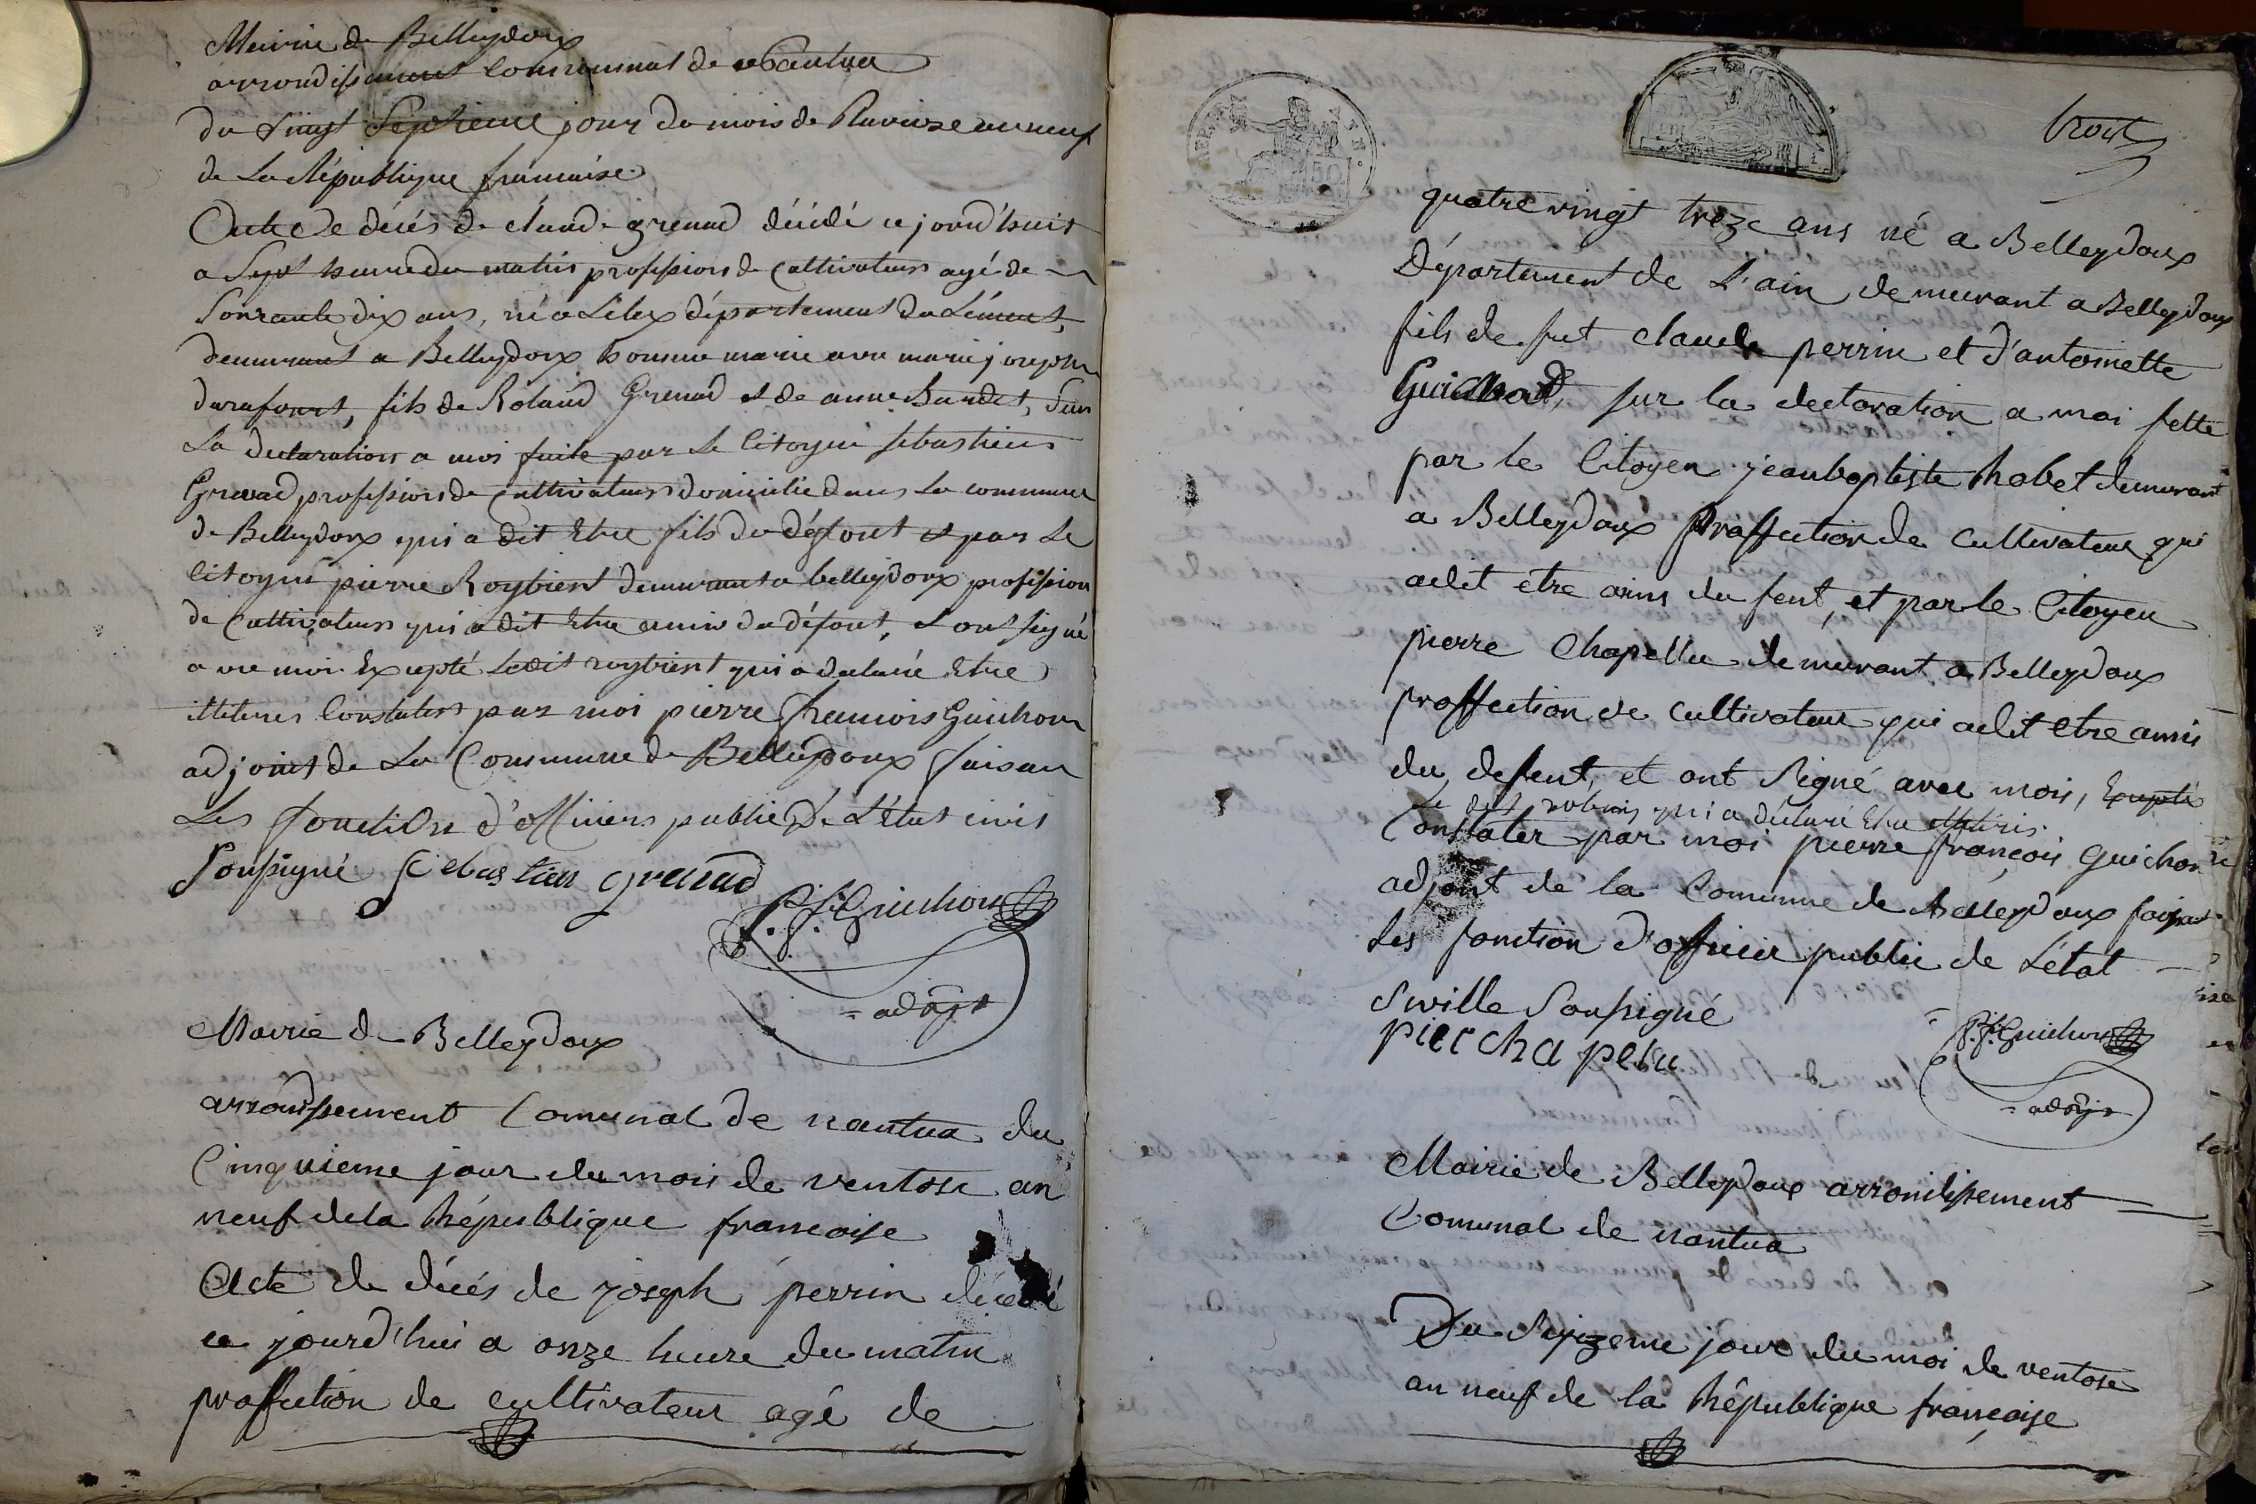 Mairie de Belleydoux
arrondissement Communal de Nantua
du vingt Septieme jour du mois de Pluviose an neuf
de La République francaise
Acte de décés de claude grenad décédé ce jourd'huit
a Sept heure du matin profession de Cultivateur agé de
Soixante dix ans, né a Lelex département du Lément,
demeurant a Belleydoux homme marié avec marie joseph
durafourt, fils de Roland Grenad et de anne Burdet, Sur
La declaration a moi faite par Le Citoyen sebastien
Grenad profession de Cultivateur domicilié dans La commune
de Belleydoux qui a dit Etre fils du défont et par Le
Citoyen pierre Roybient demeurant a belleydoux profession
de Cultivateur qui a dit Etre amis du défont, L ont signé
avec moi Excepté Ledit roybient qui a declaré Etre
illiteres Constater par moi pierre francois Guichon
adjoint de La Commune de Belleydoux faisan
Les fonction d'officiers public De L'état civis
Soussigné Sebastien grenad
P. f. Guichon
= adjt
Mairie de Belleydoux
arrondissement Comunal de nantua du
Cinquieme jour du mois de ventose an
neuf de la République francoise
Acte de décés de joseph perrin décédé
ce jourd'hui a onze heure du matin
proffection de cultivateur agé de
trois
quatre vingt treze ans né a Belleydoux
Département de L'ain demeurant a Belleydoux
fils de fut claude perrin et d'antoinette
Guichod, sur la declaration a moi fette
par le Citoyen jean baptiste Robet demurant
a Belleydoux Proffection de Cultivateur qui
a dit être amis du fent, et par le Citoyen
pierre Chapellu demurant a Belleydoux
proffection de cultivateur qui a dit etre amis
du defent, et ont signé avec mois, Excepté
Le dit qui a déclaré Etre
Constater par moi pierre françois Guichon
adjont de la Comunne de Belleydoux faisant
Les fonction d'officier public de L'état
Siville Soussigné
pier cha pelu
P. f. Guichon
= adjt
Mairie de Belleydoux arrondissement
Comunal de nantua
Du Seizeme jour du moi de ventose
an neuf de la République françoise